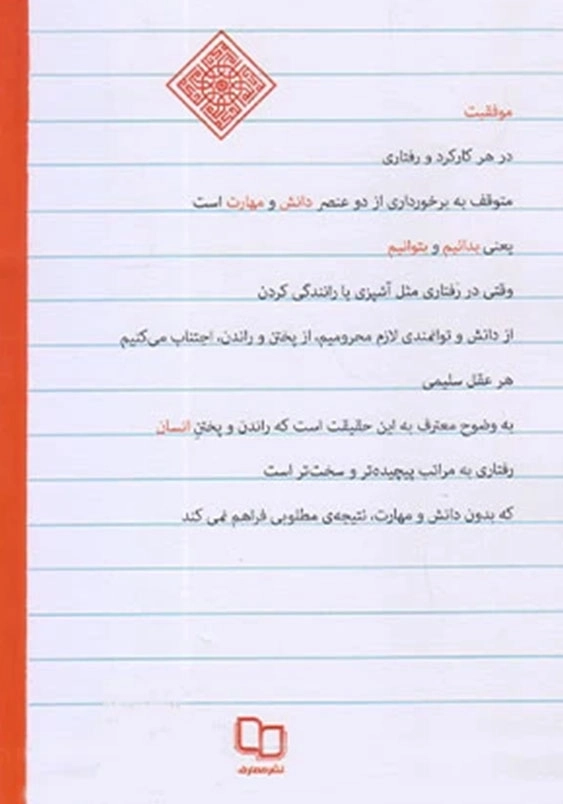 موفقیت
در هر کارکرد و رفتاری
متوقف به برخورداری از دو عنصر دانش و مهارت است
یعنی بدانیم و بتوانیم
وقتی در رفتاری مثل آشپزی یا رانندگی کردن
از دانش و توانمندی لازم محرومیم، از پختن و راندن، اجتناب می‌کنیم
هر عقل سلیمی
به وضوح معترف به این حقیقت است که راندن و پختنِ انسان
رفتاری به مراتب پیچیده‌تر و سخت‌تر است
که بدون دانش و مهارت، نتیجه‌ی مطلوبی فراهم نمی کند
نشر معارف